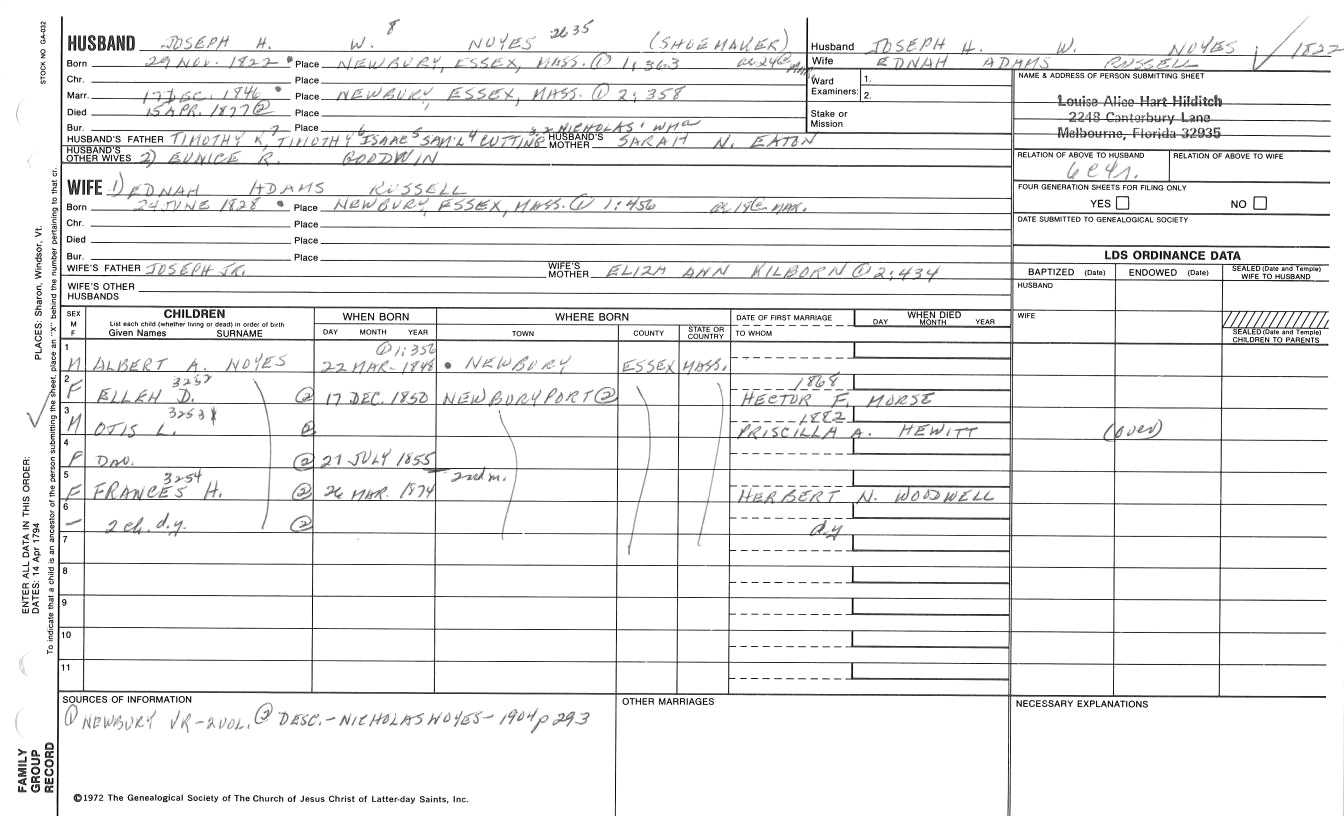 STOCK NO. GA-032
HUSBAND JOSEPH H. W. 8 NOYES 2635 (SHOEMAKER)
Born 29 NOV. 1822 Place NEWBURY, ESSEX, MASS. ① 1:363 ae 24 @ mar.
Chr. Place
Marr. 17 DEC. 1846 Place NEWBURY, ESSEX, MASS. ① 2:358
Died 15 APR. 1877 ② Place
Bur. Place
HUSBAND'S FATHER TIMOTHY K,7 TIMOTHY6 ISAAC5 SAM'L4 CUTTING3,2 NICHOLAS1 WMa HUSBAND'S MOTHER SARAH N. EATON
HUSBAND'S OTHER WIVES 2) EUNICE R. GOODWIN
WIFE 1) EDNAH ADAMS RUSSELL
Born 24 JUNE 1828 Place NEWBURY, ESSEX, MASS. ① 1:456 ae 18 @ mar.
Chr. Place
Died Place
Bur. Place
WIFE'S FATHER JOSEPH JR. WIFE'S MOTHER ELIZA ANN KILBORN ① 2:434
WIFE'S OTHER HUSBANDS
Husband JOSEPH H. W. NOYES 1822
Wife EDNAH ADAMS RUSSELL
Ward Examiners: 1. 2.
Stake or Mission
NAME & ADDRESS OF PERSON SUBMITTING SHEET
Louise Alice Hart Hilditch
2248 Canterbury Lane
Melbourne, Florida 32935
RELATION OF ABOVE TO HUSBAND RELATION OF ABOVE TO WIFE
6c4r.
FOUR GENERATION SHEETS FOR FILING ONLY
YES NO
DATE SUBMITTED TO GENEALOGICAL SOCIETY
LDS ORDINANCE DATA
BAPTIZED (Date) ENDOWED (Date) SEALED (Date and Temple) WIFE TO HUSBAND
HUSBAND
WIFE
SEALED (Date and Temple) CHILDREN TO PARENTS
SEX M F CHILDREN WHEN BORN WHERE BORN DATE OF FIRST MARRIAGE WHEN DIED
List each child (whether living or dead) in order of birth
Given Names SURNAME DAY MONTH YEAR TOWN COUNTY STATE OR COUNTRY TO WHOM DAY MONTH YEAR
1 ① 1:356
M ALBERT A. NOYES 22 MAR. 1848 NEWBURY ESSEX MASS.
2 3252 1868
F ELLEN D. ② 17 DEC. 1850 NEWBURYPORT ② HECTOR F. MORSE
3 3253 1882
M OTIS L. ② PRISCILLA A. HEWITT (over)
4
F DAU. ② 27 JULY 1855
5 3254 2nd m.
F FRANCES H. ② 26 MAR. 1874 HERBERT N. WOODWELL
6
— 2 ch. d.y. ② d.y
7
8
9
10
11
SOURCES OF INFORMATION OTHER MARRIAGES NECESSARY EXPLANATIONS
① NEWBURY VR-2VOL. ② DESC.-NICHOLAS NOYES-1904 p 293
©1972 The Genealogical Society of The Church of Jesus Christ of Latter-day Saints, Inc.
FAMILY GROUP RECORD
ENTER ALL DATA IN THIS ORDER:
DATES: 14 Apr 1794
PLACES: Sharon, Windsor, Vt.
To indicate that a child is an ancestor of the person submitting the sheet, place an "X" behind the number pertaining to that ch.